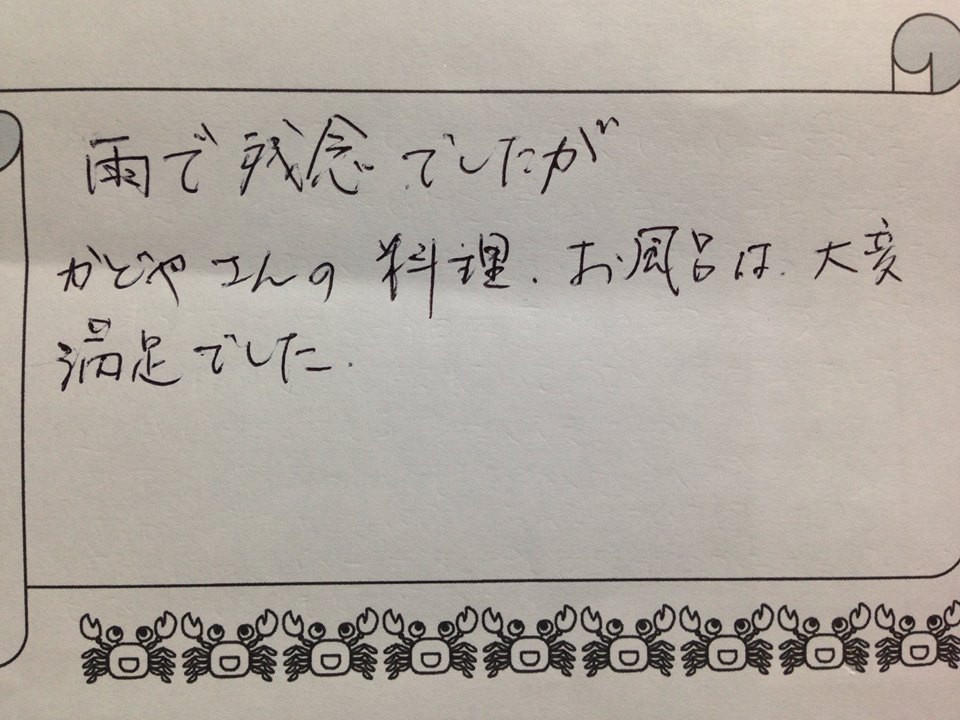 雨で残念でしたが
かどやさんの料理、お風呂は、大変
満足でした.